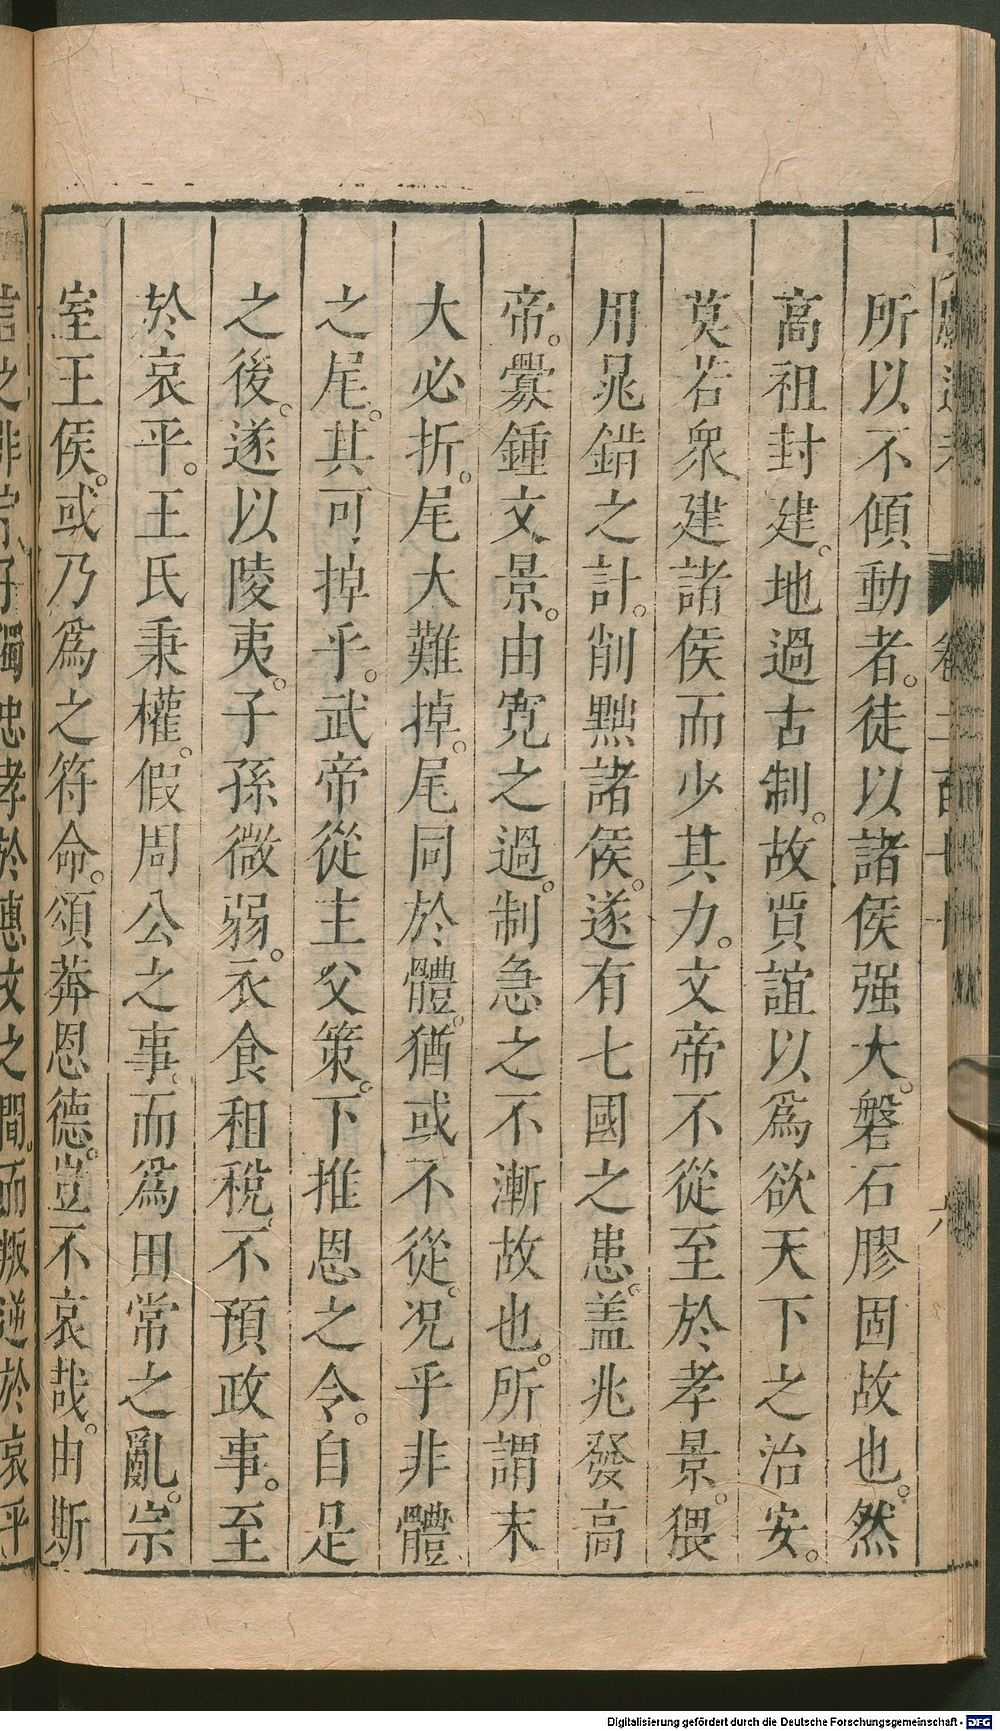 所以不傾動者。徒以諸侯强大。磐石膠固故也。然
高祖封建。地過古制。故賈誼以爲欲天下之治安。
莫若衆建諸侯而少其力。文帝不從至於孝景。猥
用晁錯之計。削黜諸侯。遂有七國之患。蓋兆發高
帝。釁鍾文景。由寬之過。制急之不漸故也。所謂末
大必折。尾大難掉。尾同於體。猶或不從。况乎非體
之尾。其可掉乎。武帝從主父策。下推恩之令。自是
之後。遂以陵夷。子孫微弱。衣食租稅。不預政事。至
於哀平。王氏秉權。假周公之事。而爲田常之亂。宗
室王侯。或乃爲之符命。頌莽恩德。豈不哀哉。由斯
言之非宗子獨忠孝於惠文之間。而叛逆於哀平
Digitalisierung gefördert durch die Deutsche Forschungsgemeinschaft - DFG